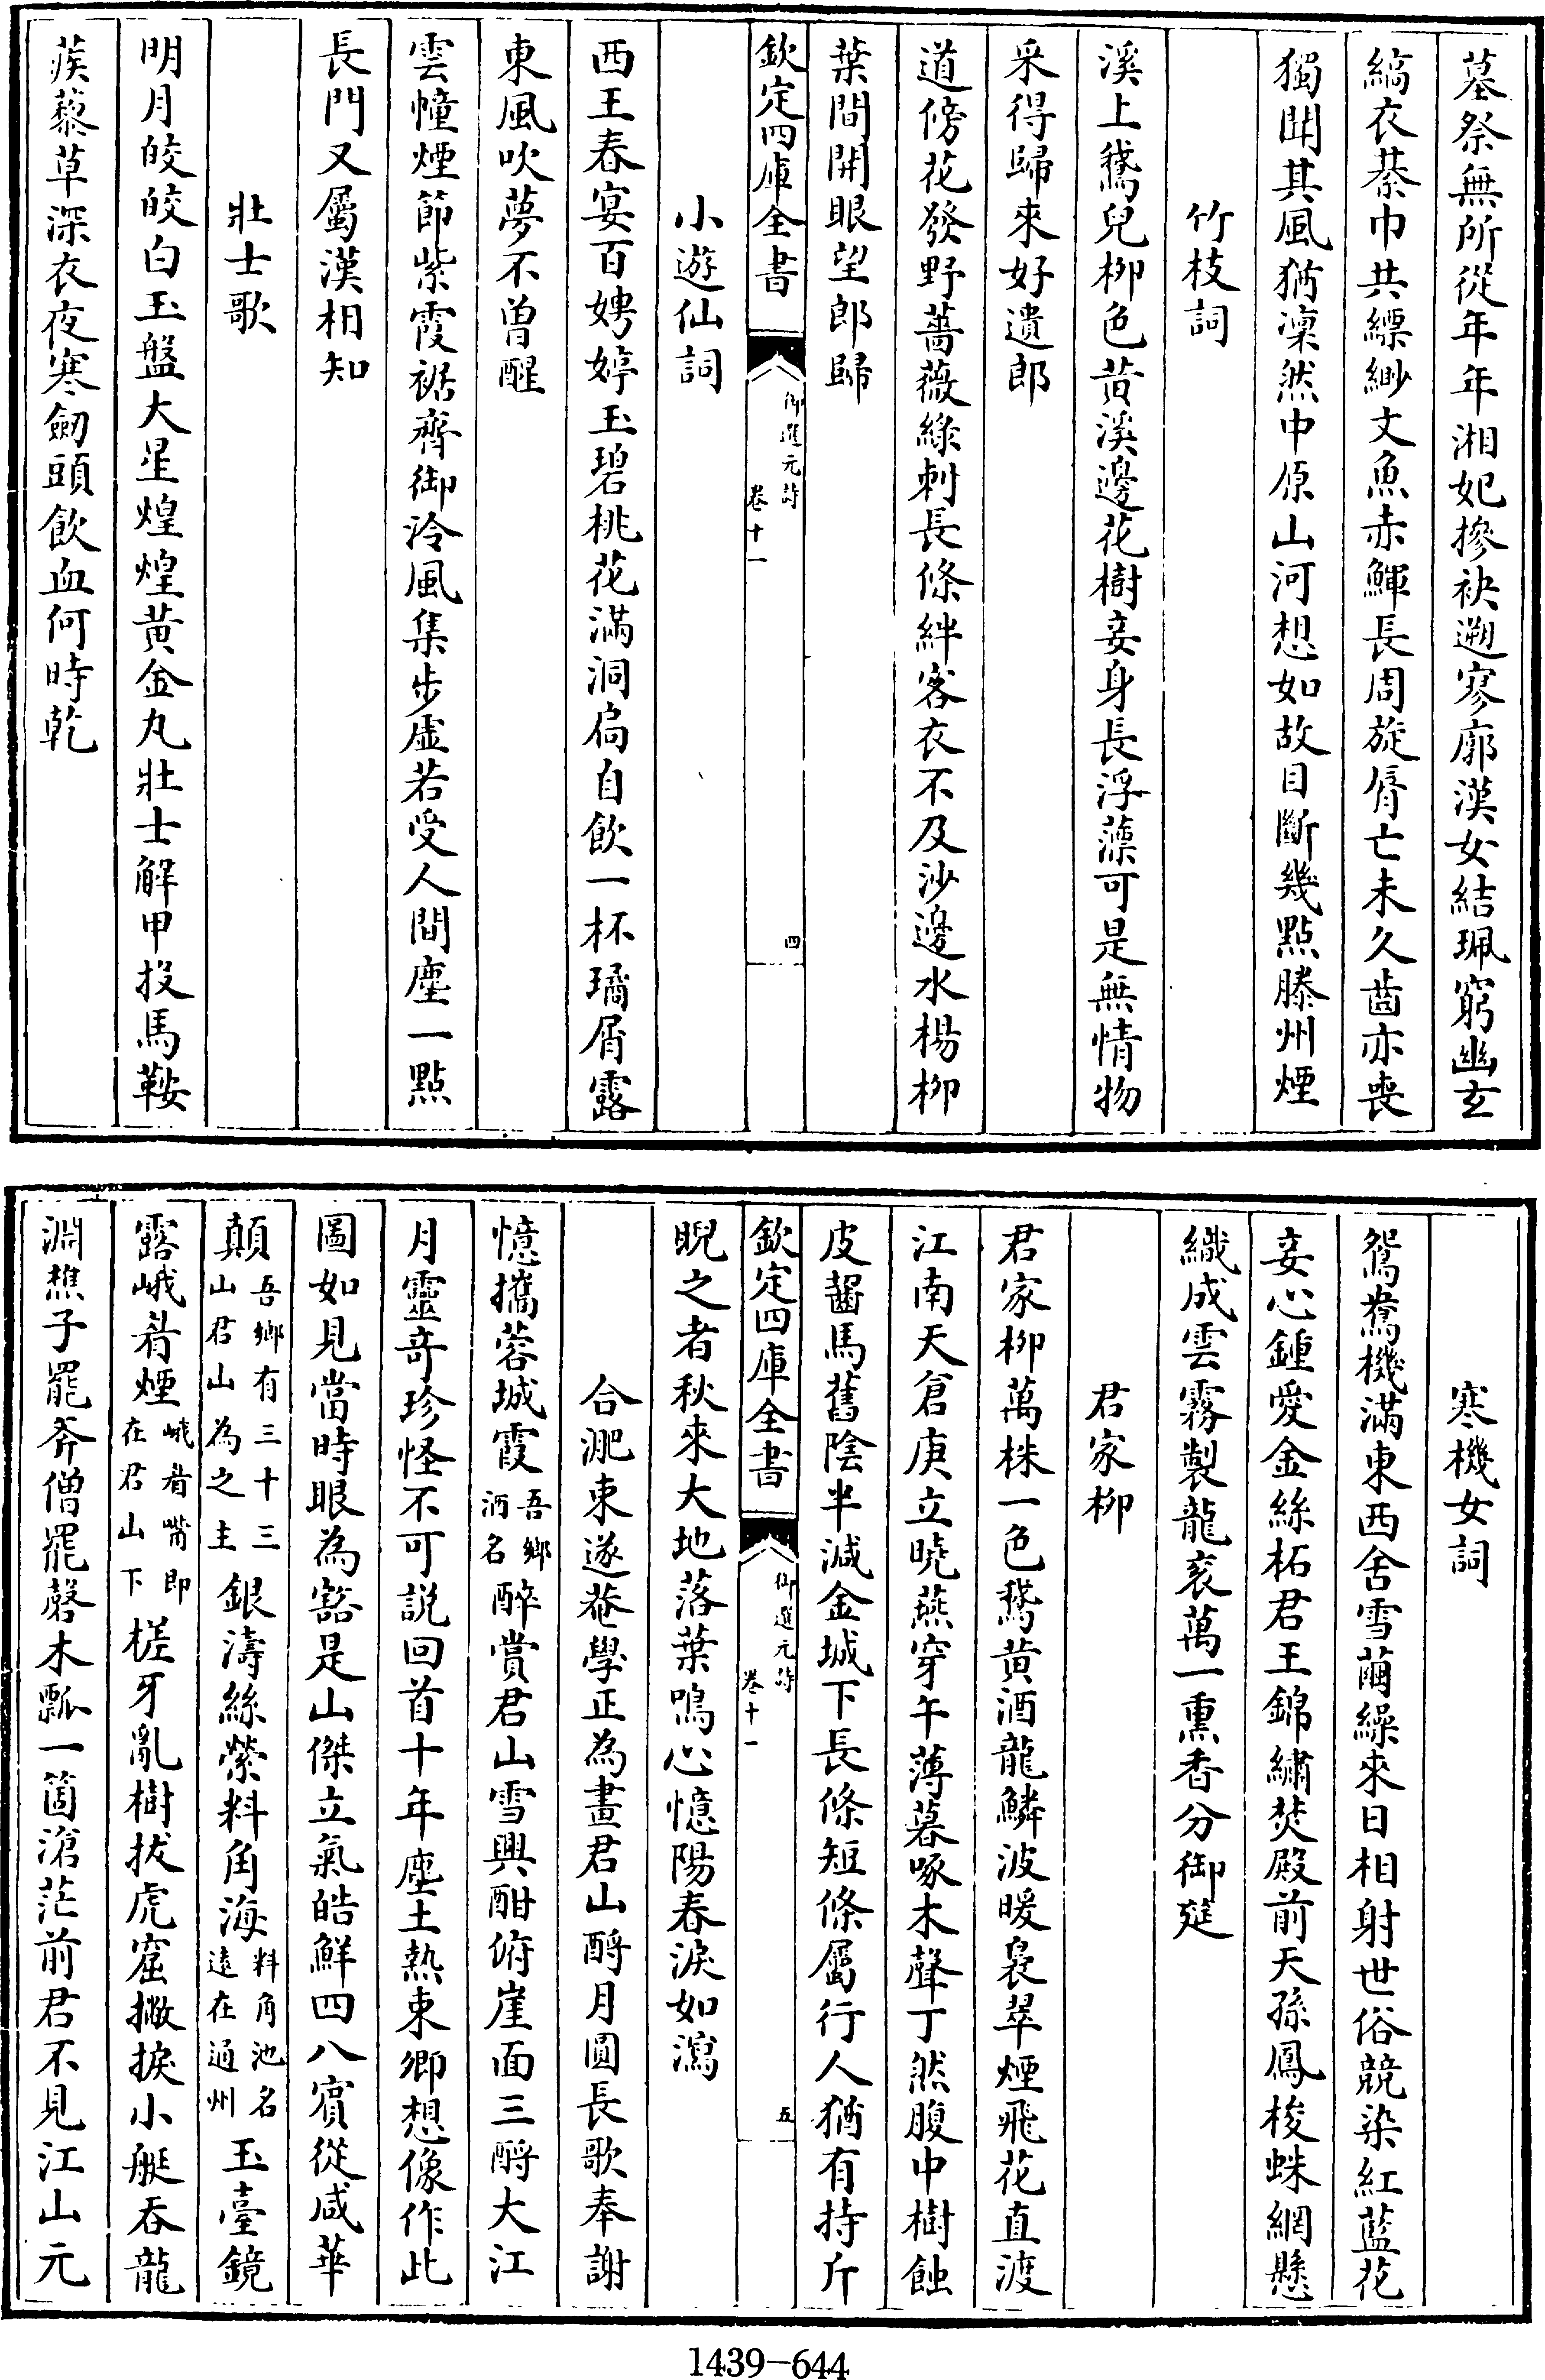 墓祭無所從年年湘妃摻袂遡寥廓漢女結珮窮幽玄
縞衣綦巾共縹緲文魚赤鯶長周旋脣亡未久齒亦喪
獨聞其風猶凜然中原山河想如故目斷幾點滕州煙
竹枝詞
溪上鵞兒柳色黄溪邊花樹妾身長浮薸可是無情物
采得歸來好遺郎
道傍花發野薔薇綠刺長條絆客衣不及沙邊水楊柳
葉間開眼望郎歸
欽定四庫全書
御選元詩
卷十一
四
小遊仙詞
西王春宴百娉婷玉碧桃花滿洞扃自飲一杯璚屑露
東風吹夢不曾醒
雲幢煙節紫霞裾齊御泠風集步虛若受人間塵一點
長門又屬漢相知
壯士歌
明月皎皎白玉盤大星煌煌黄金丸壯士解甲投馬鞍
蒺藜草深衣夜寒劒頭飲血何時乾
寒機女詞
鴛鴦機滿東西舍雪繭繰來日相射世俗競染紅藍花
妾心鍾愛金絲柘君王錦繡焚殿前天孫鳳梭蛛網懸
織成雲霧製龍衮萬一熏香分御筵
君家柳
君家柳萬株一色鵞黄酒龍鱗波暖裊翠煙飛花直渡
江南天倉庚立曉燕穿午薄暮啄木聲丁然腹中樹蝕
皮齧馬舊陰半減金城下長條短條屬行人猶有持斤
欽定四庫全書
御選元詩
卷十一
五
睨之者秋來大地落葉鳴心憶陽春淚如瀉
合淝東遂菴學正為畫君山酹月圓長歌奉謝
憶攜蓉城霞
吾鄉
酒名
醉賞君山雪興酣俯崖面三酹大江
月靈奇珍怪不可説回首十年塵土熱東卿想像作此
圖如見當時眼為豁是山傑立氣皓鮮四八賓從咸華
顛
吾鄉有三十三
山君山為之主
銀濤絲縈料角海
料角池名
遠在通州
玉臺鏡
露峨䏿煙
峨䏿嘴即
在君山下
槎牙亂樹拔虎窟撇捩小艇吞龍
淵樵子罷斧僧罷磬木瓢一箇滄茫前君不見江山元
1439-644